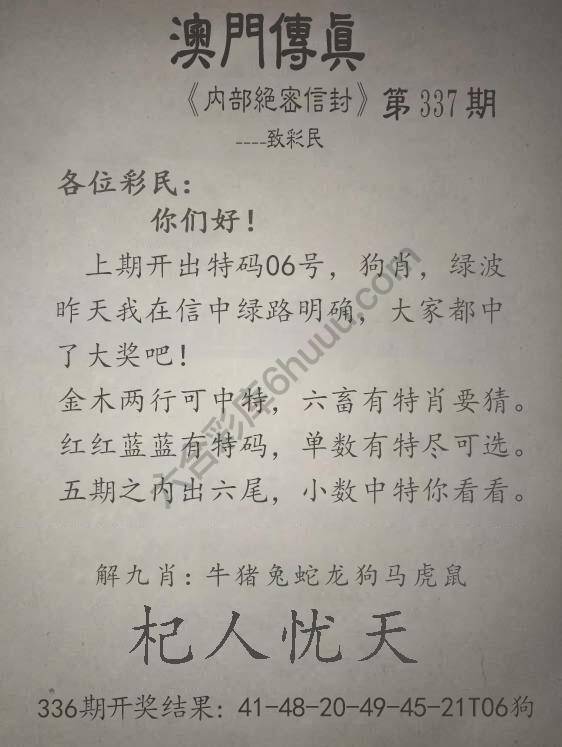 澳門傳真
《内部絕密信封》第337期
----致彩民
各位彩民:
你们好!
上期开出特码06号，狗肖，绿波
昨天我在信中绿路明确，大家都中
了大奖吧!
金木两行可中特，六畜有特肖要猜。
红红蓝蓝有特码，单数有特尽可选。
五期之内出六尾，小数中特你看看。
六合彩库6huuu.com
解九肖：牛猪兔蛇龙狗马虎鼠
杞人忧天
336期开奖结果：41-48-20-49-45-21T06狗